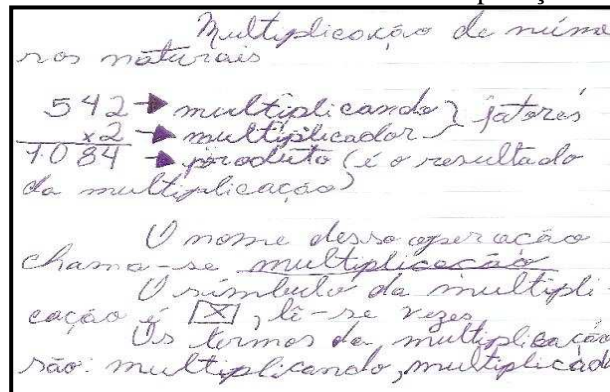 Multiplicação de núme
ros naturais
542 → multiplicando } fatores
x2 → multiplicador
1084 → produto (é o resultado
da multiplicação)
O nome dessa operação
chama-se multiplicação
O símbulo da multipli-
cação é X, lê-se vezes
Os termos da multiplicação
são: multiplicando, multiplicado